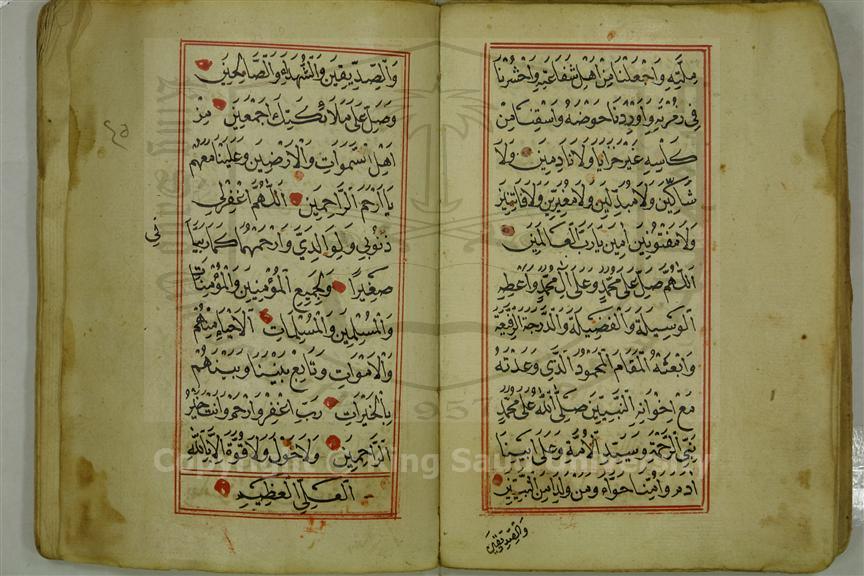 مِلَّتِهِ وَاجْعَلْنَا مِنْ اَهْلِ شَفَاعَتِهِ وَاحْشُرْنَا
فِى زُمْرَتِهِ وَاَوْرِدْنَا حَوْضَهُ وَاَسْقِنَا مِنْ
كَاْسِهِ غَيْرَ خَزَايَا وَلَا نَادِمِينَ وَلَا
شَاكِّينَ وَلَا مُبَدِّلِينَ وَلَا مُغَيِّرِينَ وَلَا فَاتِنِينَ
وَلَا مَفْتُونِينَ اٰمِينَ يَارَبَّ الْعَالَمِينَ
اَللّٰهُمَّ صَلِّ عَلَى مُحَمَّدٍ وَعَلَى اٰلِ مُحَمَّدٍ وَاَعْطِهِ
الْوَسِيلَةَ وَالْفَضِيلَةَ وَالدَّرَجَةَ الرَّفِيعَةَ
وَابْعَثْهُ الْمَقَامَ الْمَحْمُودَ الَّذِى وَعَدْتَهُ
مَعَ اِخْوَانِهِ النَّبِيِّينَ صَلَّى اللّٰهُ عَلَى مُحَمَّدٍ
نَبِىِّ الرَّحْمَةِ وَسَيِّدِ الْاُمَّةِ وَعَلَى اَبِينَا
اٰدَمَ وَاُمِّنَا حَوَّاءَ وَمَنْ وَلَدَا مِنَ النَّبِيِّينَ
وَالصِّدِّيقِينَ
وَالصِّدِّيقِينَ وَالشُّهَدَاءِ وَالصَّالِحِينَ
وَصَلِّ عَلَى مَلَائِكَتِكَ اَجْمَعِينَ مِنْ
اَهْلِ السَّمٰوَاتِ وَالْاَرْضِينَ وَعَلَيْنَا مَعَهُمْ
يَا اَرْحَمَ الرَّاحِمِينَ اَللّٰهُمَّ اغْفِرْ لِى
ذُنُوبِى وَلِوَالِدَىَّ وَارْحَمْهُمَا كَمَا رَبَّيَا
صَغِيرًا وَلِجَمِيعِ الْمُؤْمِنِينَ وَالْمُؤْمِنَاتِ
وَالْمُسْلِمِينَ وَالْمُسْلِمَاتِ الْاَحْيَاءِ مِنْهُمْ
وَالْاَمْوَاتِ وَتَابِعْ بَيْنَنَا وَبَيْنَهُمْ
بِالْخَيْرَاتِ رَبِّ اغْفِرْ وَارْحَمْ وَاَنْتَ خَيْرُ
الرَّاحِمِينَ وَلَا حَوْلَ وَلَا قُوَّةَ اِلَّا بِاللّٰهِ
الْعَلِىِّ الْعَظِيمِ
1957
Copyright © King Saud University